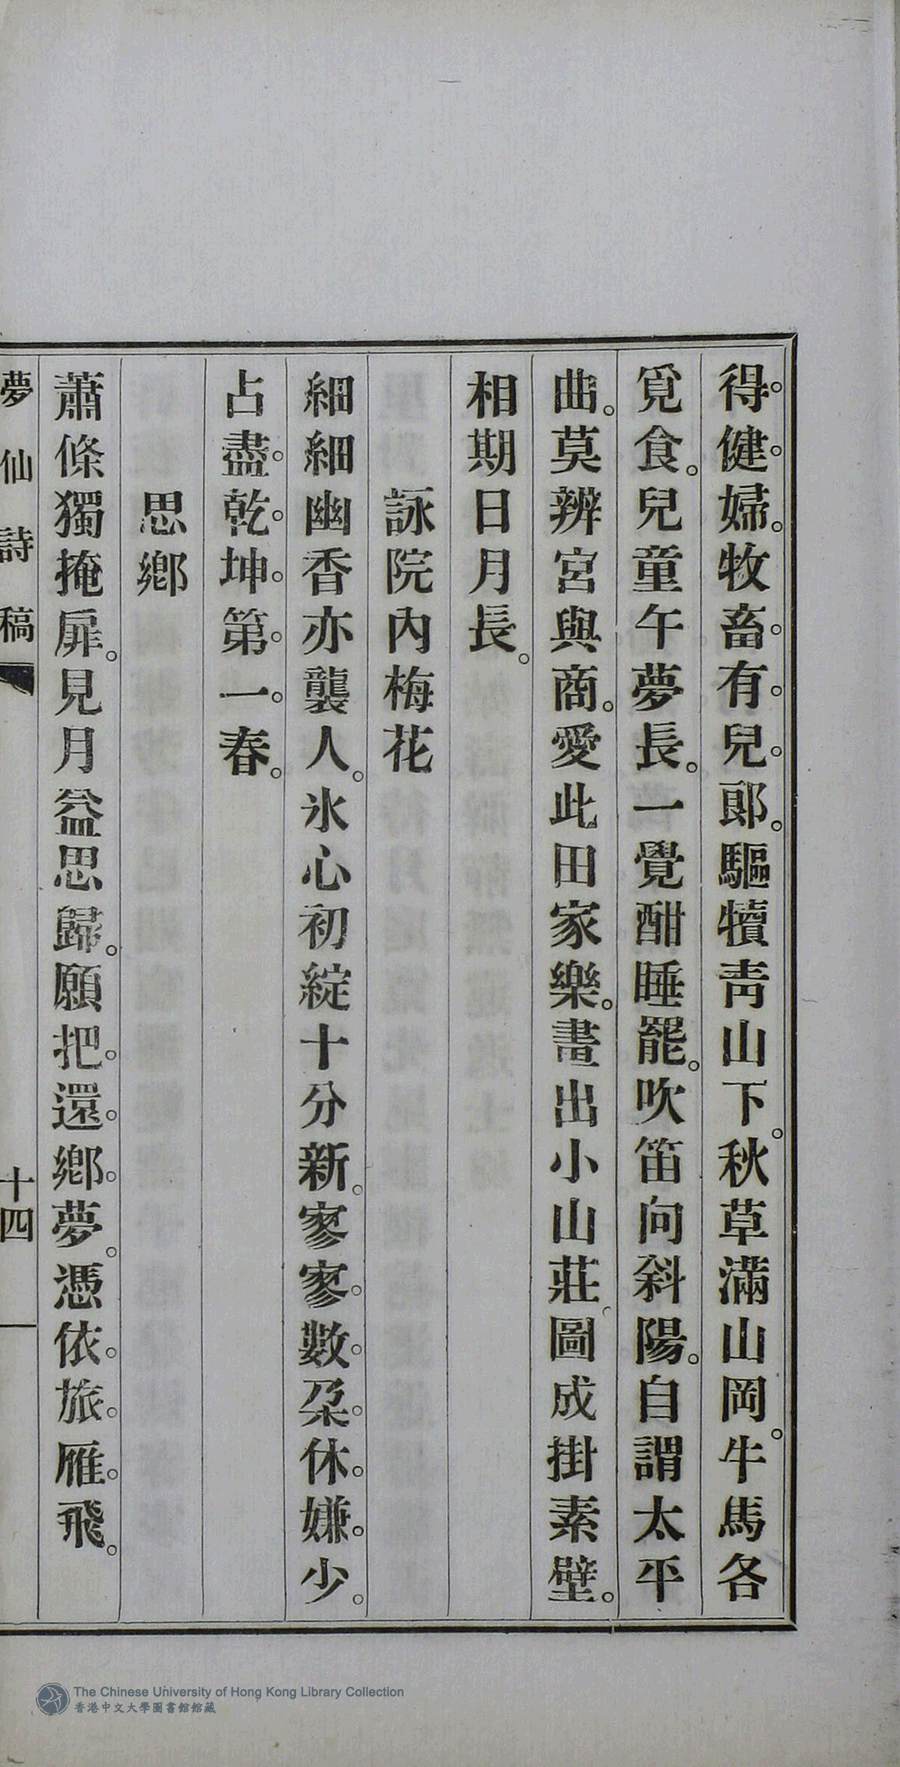 得。健。婦。牧畜。有。兒。郎。驅犢青山下。秋草滿山岡。牛馬各
覓食。兒童午夢長。一覺酣睡罷。吹笛向斜陽。自謂太平
曲。莫辨宮與商。愛此田家樂。畫出小山莊。圖成掛素壁。
相期日月長。
詠院內梅花
細細幽香亦襲人。氷心初綻十分新。寥寥。數。朶。休。嫌。少。
占盡。乾。坤。第。一。春。
思鄉
蕭條獨掩扉。見月益思歸。願把。還。鄉。夢。憑依。旅。雁。飛。
夢仙詩稿
十四
The Chinese University of Hong Kong Library Collection
香港中文大學圖書館館藏